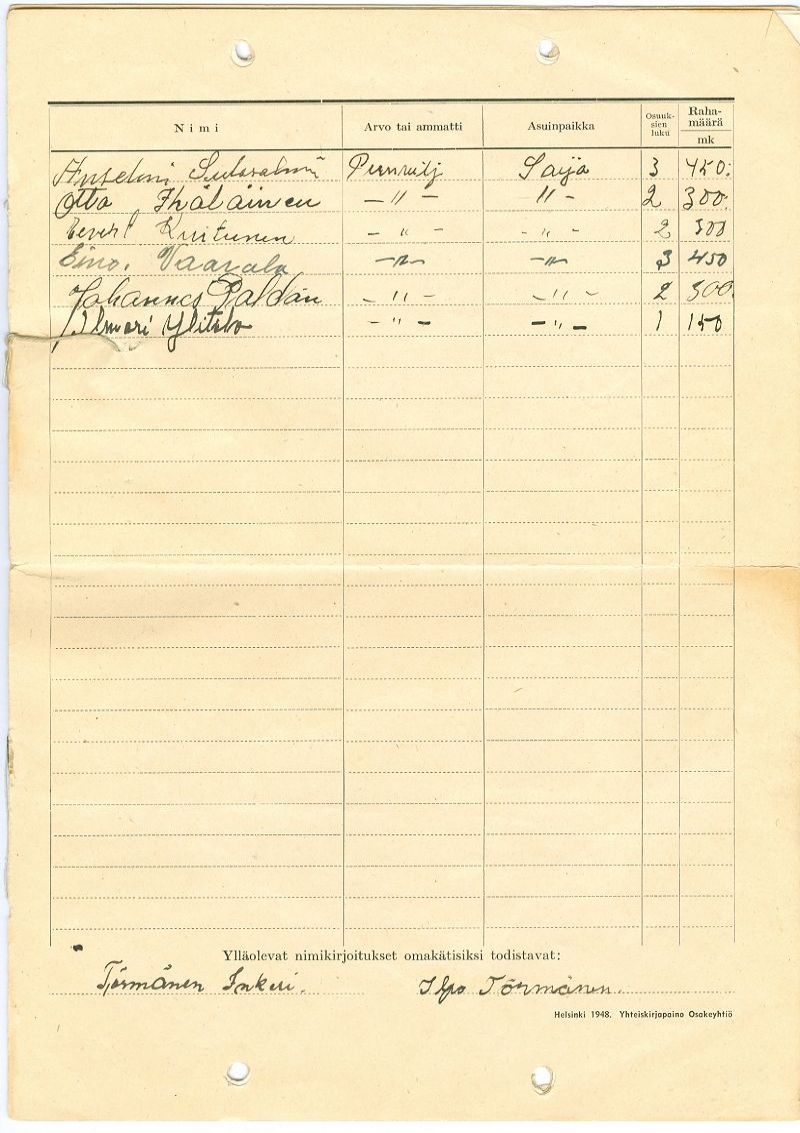 Nimi Arvo tai ammatti Asuinpaikka Osuuksien luku Rahamäärä mk
Anselmi Pienvilj Saija 3 450:
Otto Ikäläinen — " — " — 2 300:
Eevert Kuitunen — " — — " — 2 300
Eino. Vaarala — " — — " — 3 450
Johannes Paldán — " — — " — 2 300.
Ilmari Ylitalo — " — — " — 1 150
Ylläolevat nimikirjoitukset omakätisiksi todistavat:
Törmänen Inkeri. Ilpo Törmänen.
Helsinki 1948. Yhteiskirjapaino Osakeyhtiö